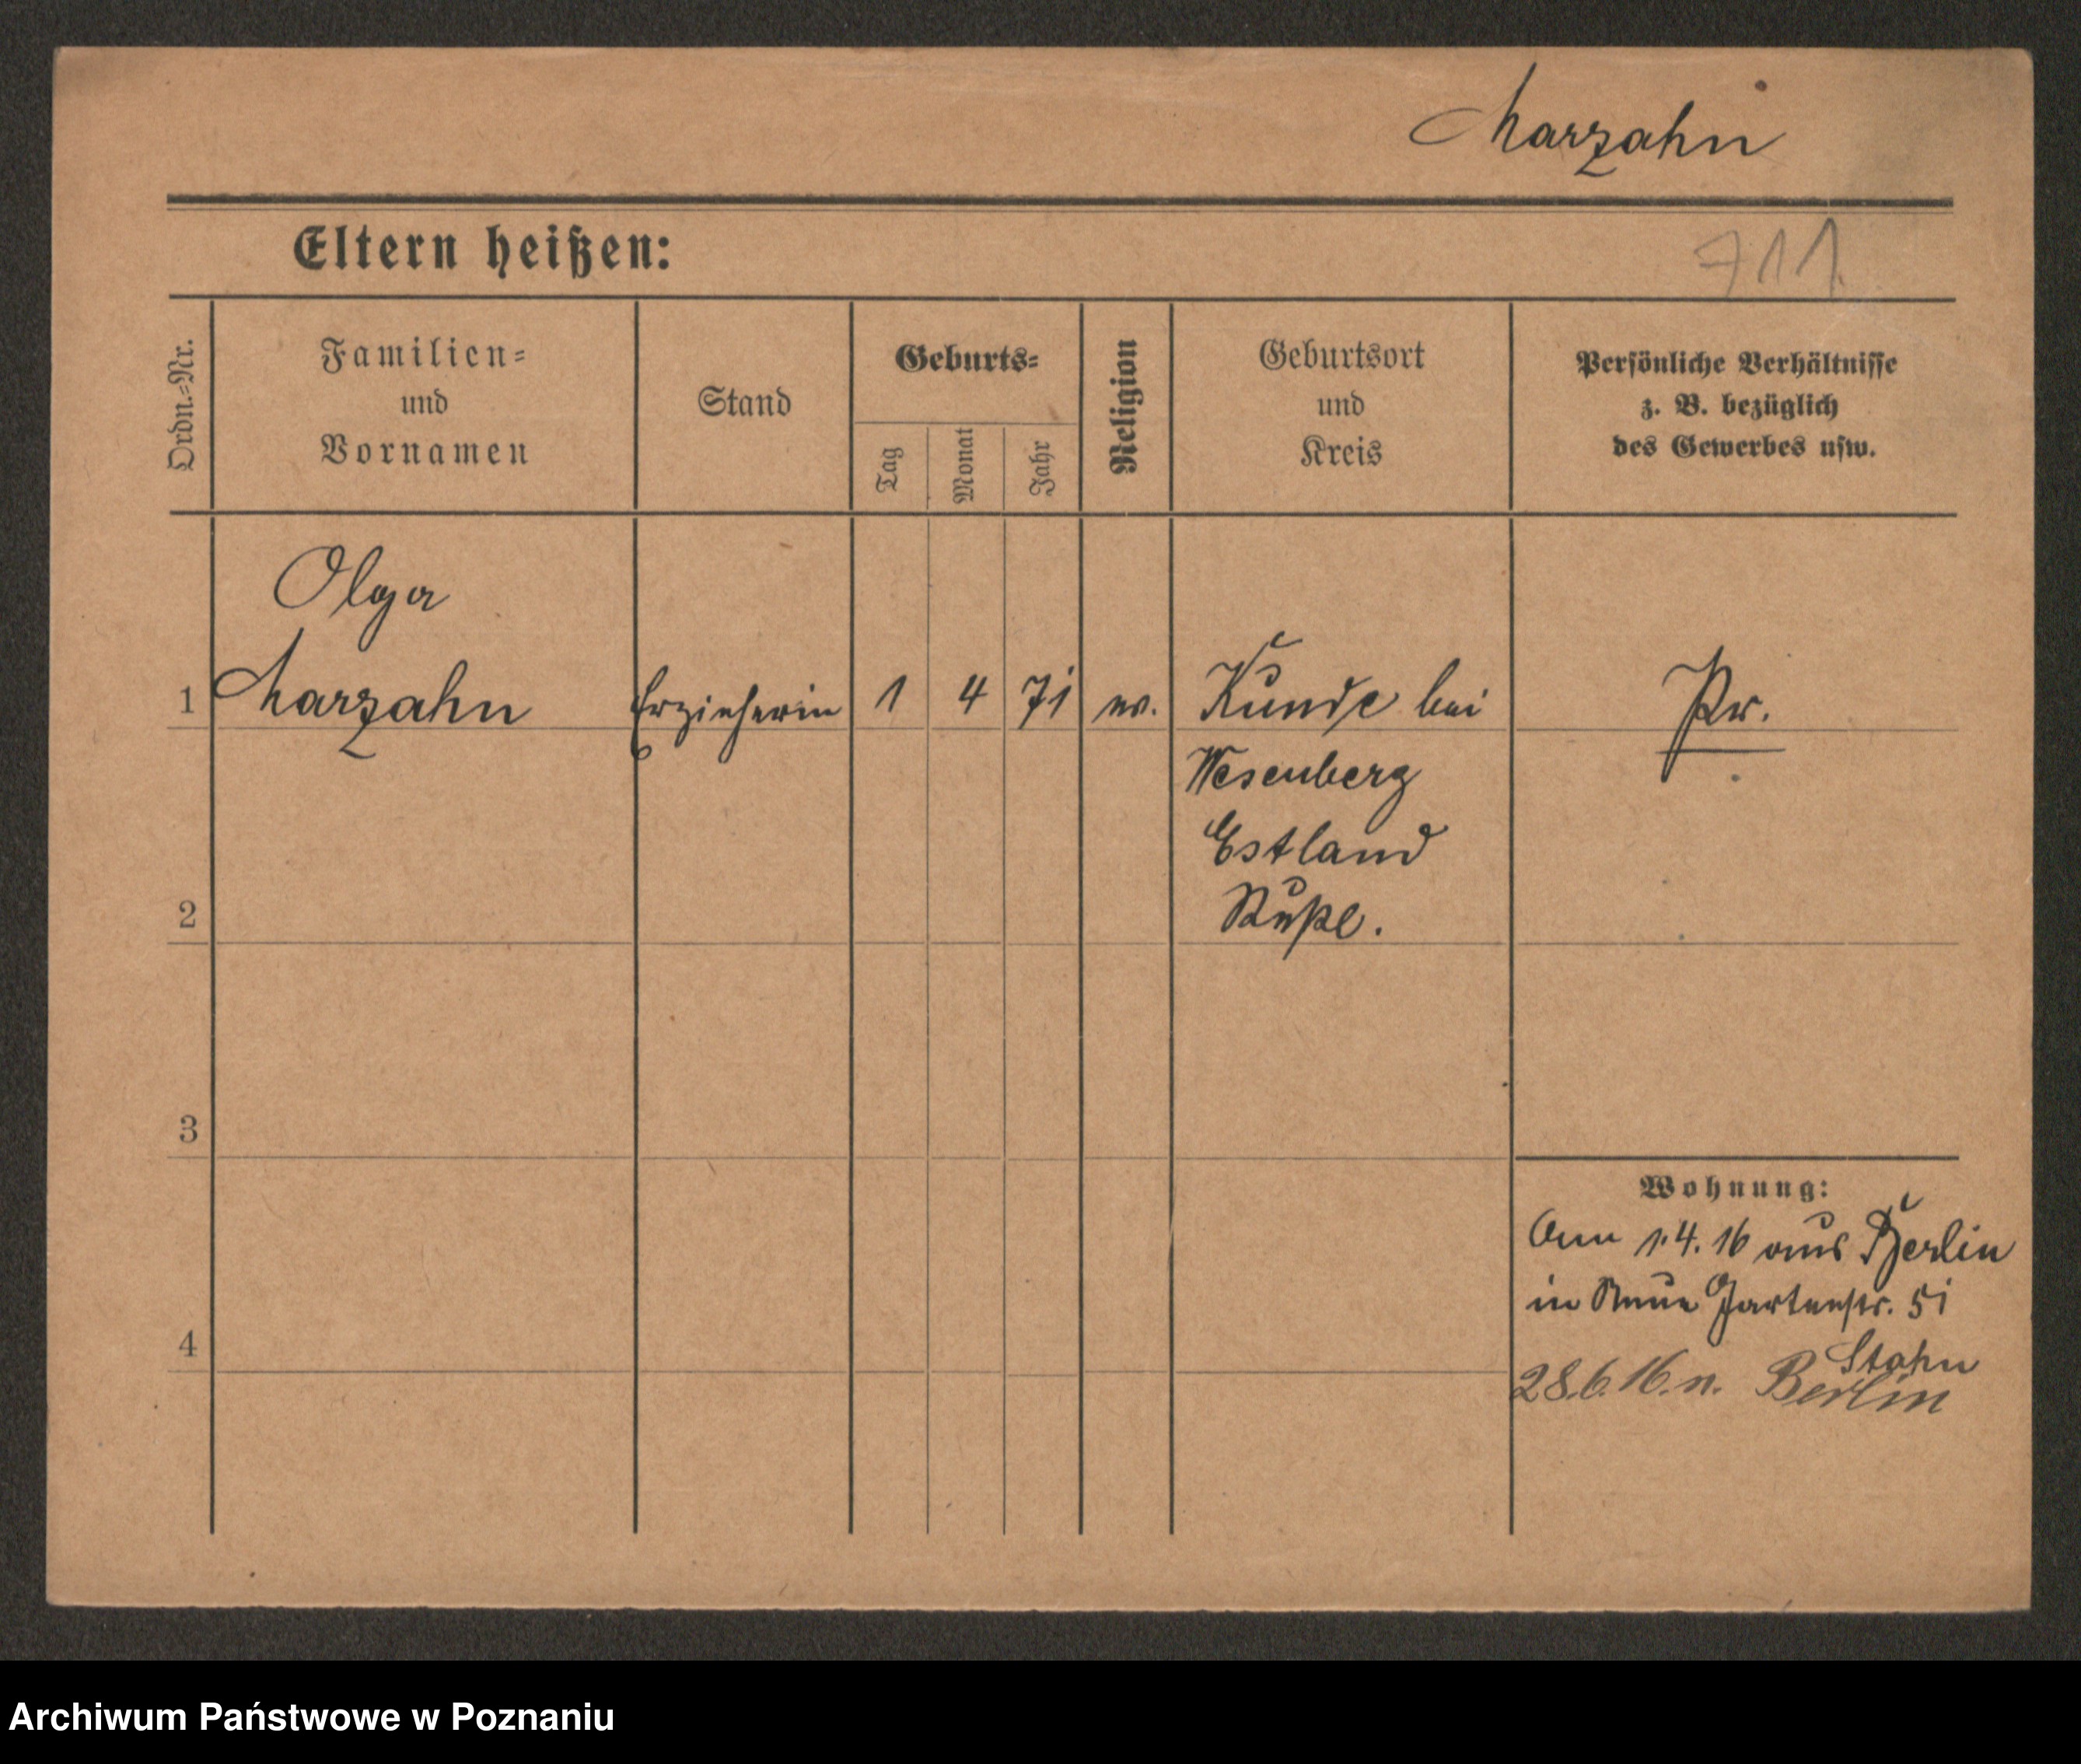 Marzahn
Eltern heißen:
711.
Ordn.-Nr.
Familien-
und
Vornamen
Stand
Geburts-
Tag
Monat
Jahr
Religion
Geburtsort
und
Kreis
Persönliche Verhältnisse
z. B. bezüglich
des Gewerbes usw.
Olga
1 Marzahn Erzieherin 1 4 71 ev. Kunde bei Pr.
Wesenberg
Estland
2 Rußl.
3
Wohnung:
Am 1.4.16 aus Berlin
in Neue Gartenstr. 51
4 Stahn
28.6.16. n. Berlin
Archiwum Państwowe w Poznaniu